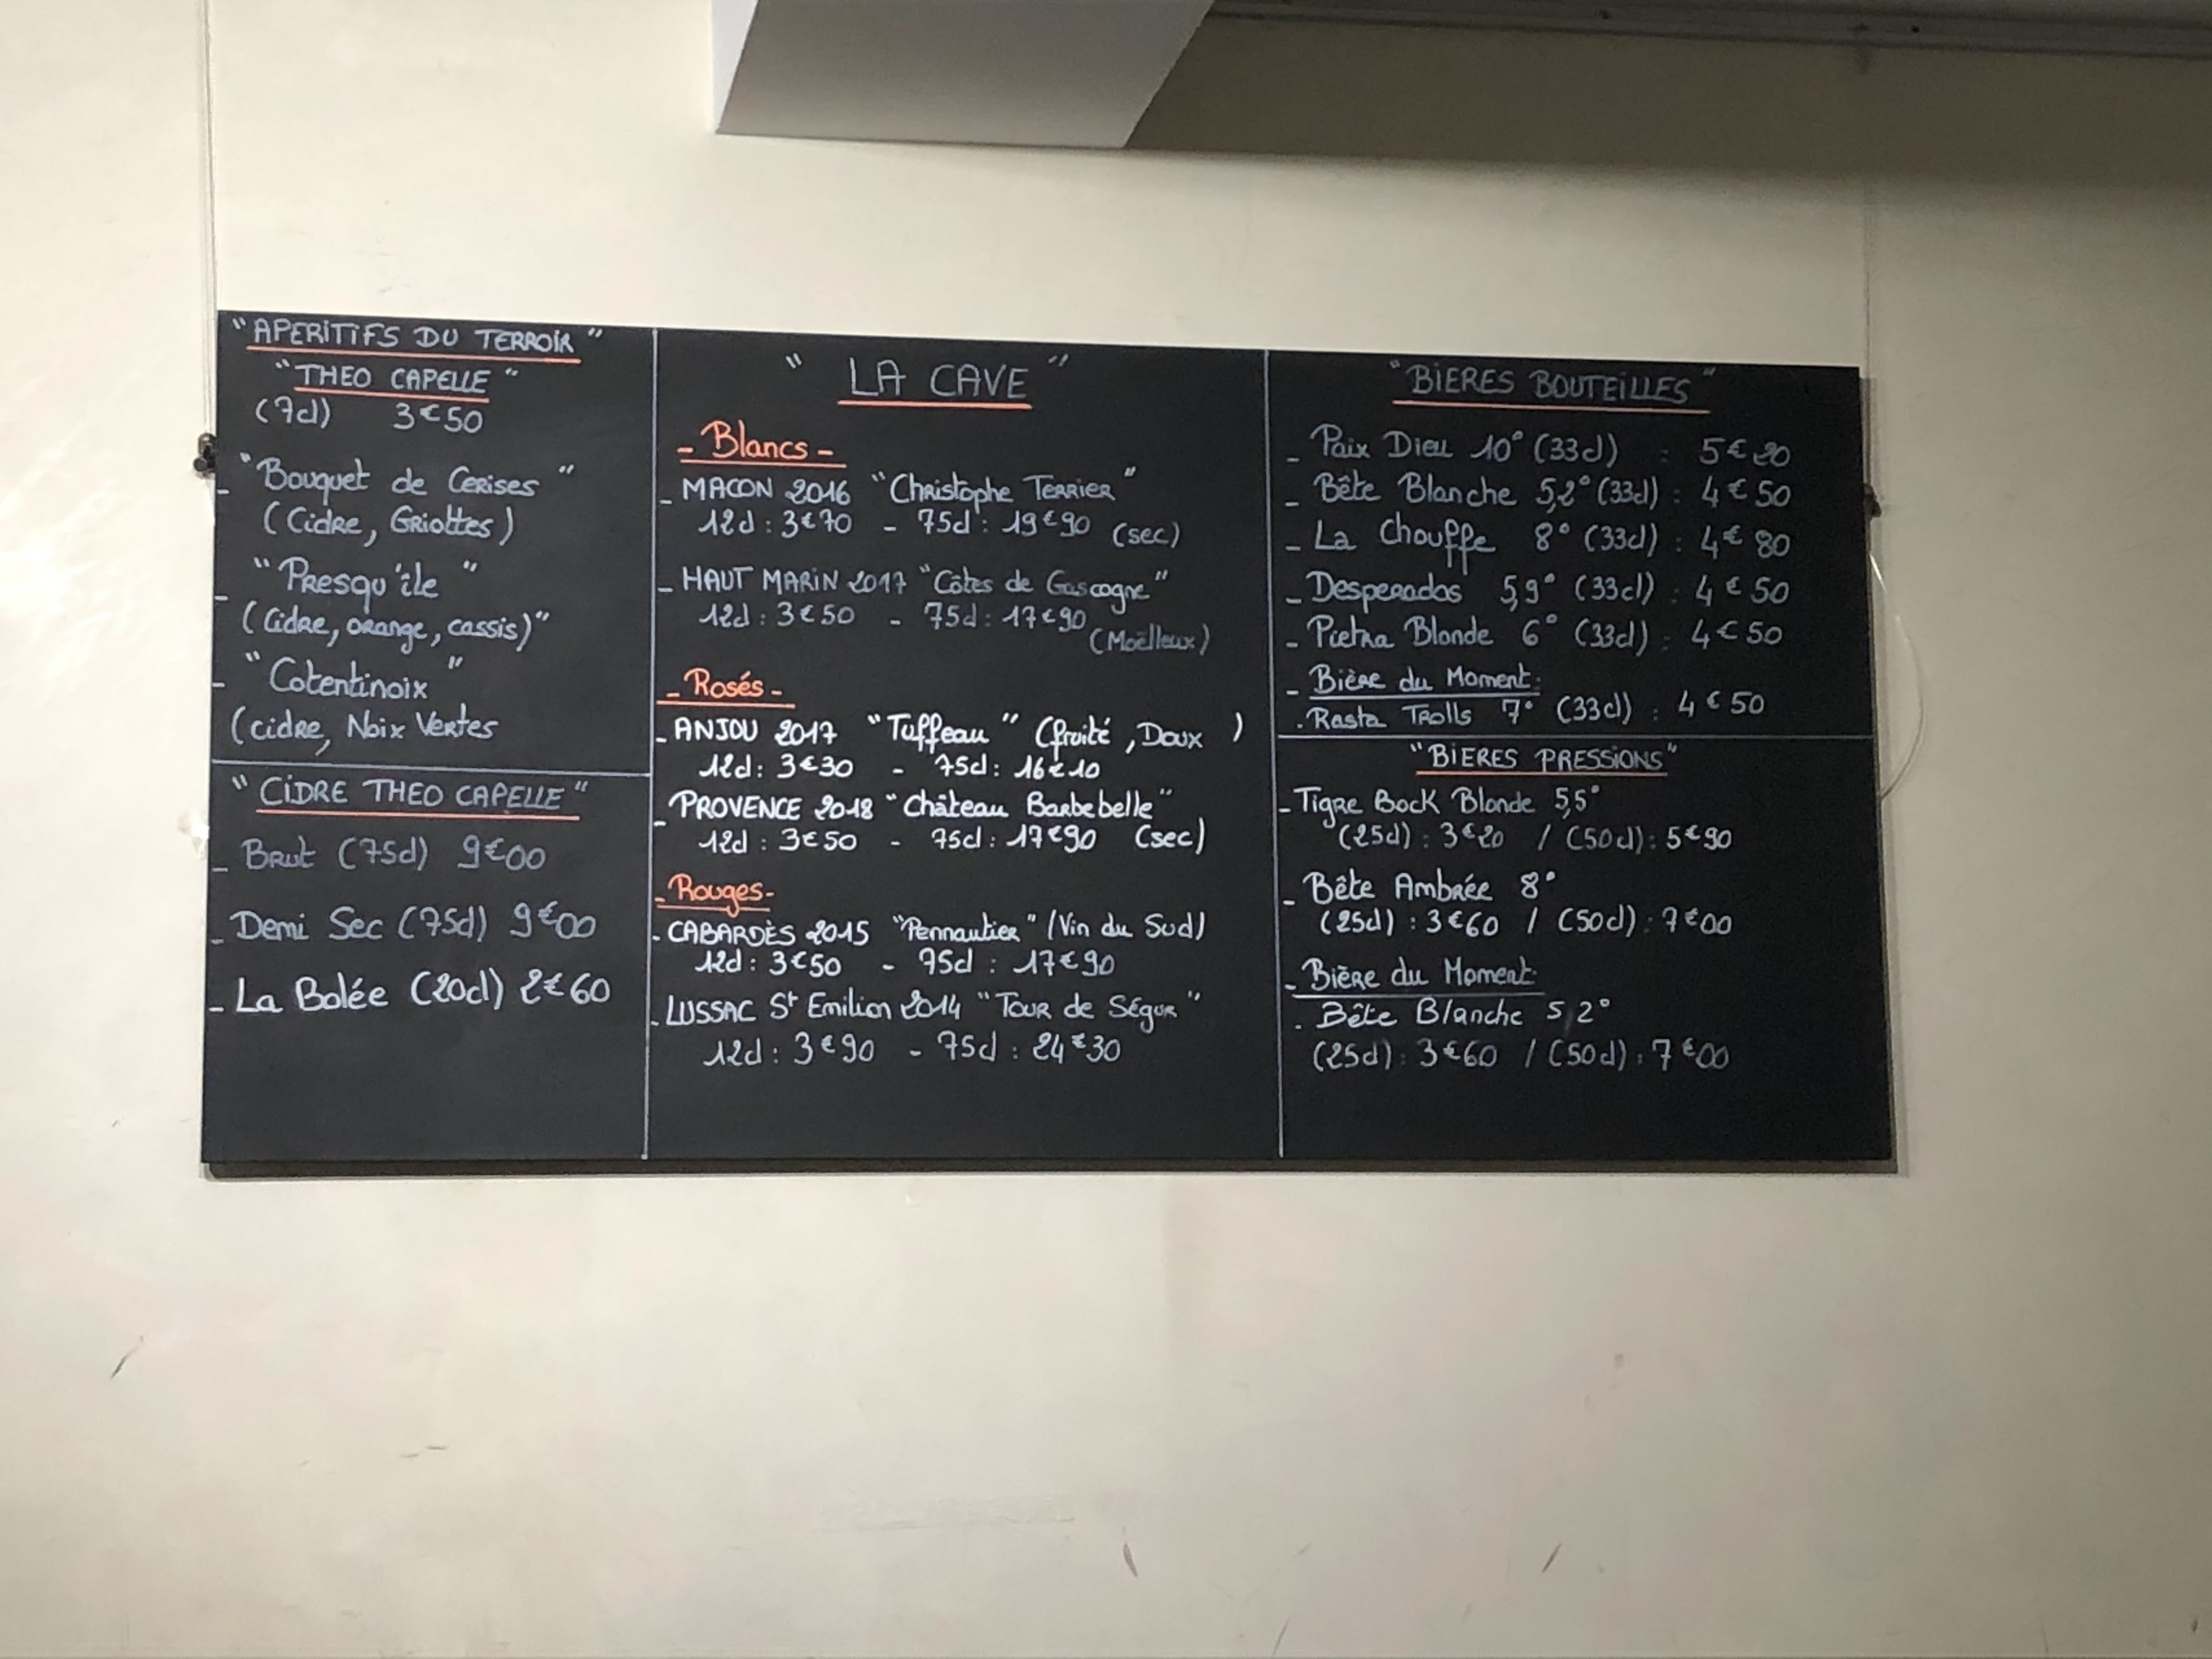 "APERITIFS DU TERROIR"
"THEO CAPELLE"
(7cl) 3€50
- "Bouquet de Cerises"
(Cidre, Griottes)
- "Presqu'île"
(Cidre, orange, cassis)"
- "Cotentinoix"
(cidre, Noix Vertes
"CIDRE THEO CAPELLE"
- Brut (75cl) 9€00
- Demi Sec (75cl) 9€00
- La Bolée (20cl) 2€60
"LA CAVE"
- Blancs -
- MACON 2016 "Christophe Terrier"
12cl : 3€70 - 75cl : 19€90 (sec)
- HAUT MARIN 2017 "Côtes de Gascogne"
12cl : 3€50 - 75cl : 17€90
(Moëlleux)
- Rosés -
- ANJOU 2017 "Tuffeau" (fruité, Doux )
12cl : 3€30 - 75cl : 16€10
- PROVENCE 2018 "Château Barbebelle"
12cl : 3€50 - 75cl : 17€90 (sec)
- Rouges -
- CABARDÈS 2015 "Pennautier" (Vin du Sud)
12cl : 3€50 - 75cl : 17€90
- LUSSAC St Emilion 2014 "Tour de Ségur"
12cl : 3€90 - 75cl : 24€30
"BIERES BOUTEILLES"
- Paix Dieu 10° (33cl) : 5€20
- Bête Blanche 5,2° (33cl) : 4€50
- La Chouffe 8° (33cl) : 4€80
- Desperados 5,9° (33cl) : 4€50
- Pietra Blonde 6° (33cl) : 4€50
- Bière du Moment:
. Rasta Trolls 7° (33cl) : 4€50
"BIERES PRESSIONS"
- Tigre Bock Blonde 5,5°
(25cl) : 3€20 / (50cl) : 5€90
- Bête Ambrée 8°
(25cl) : 3€60 / (50cl) : 7€00
- Bière du Moment:
. Bête Blanche 5,2°
(25cl) : 3€60 / (50cl) : 7€00